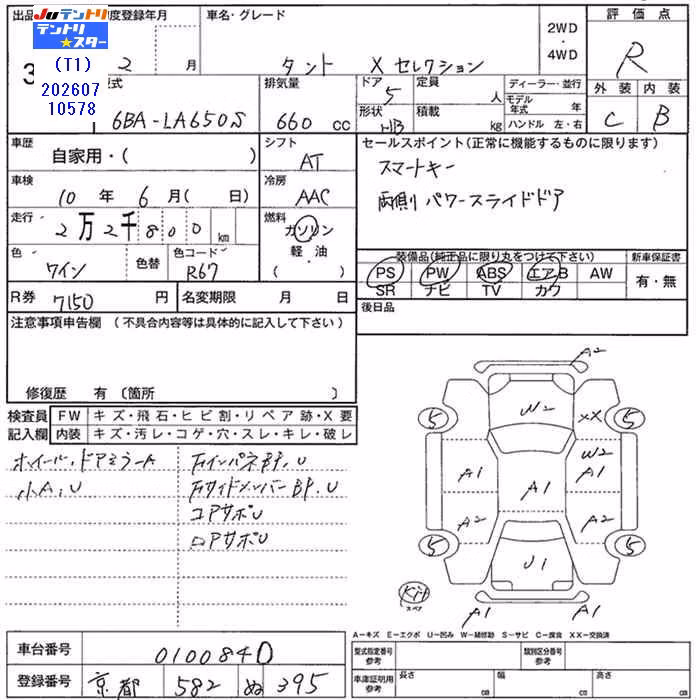 出品
Juテントリ
テントリ
★スター
(T1)
202607
10578
3
度登録年月
2 月
車名・グレード
タント X セレクション
2WD
・
4WD
評価点
R
外装 内装
C B
型式
6BA-LA650S
排気量
660 cc
ドア 5
形状 HB
定員 人
積載 kg
ディーラー・並行
モデル年式 年
ハンドル 左・右
車歴
自家用・( )
シフト
AT
セールスポイント(正常に機能するものに限ります)
スマートキー
両側パワースライドドア
車検
10 年 6 月( 日)
冷房
AAC
走行
2万2千800 km
燃料
ガソリン
軽・油
( )
色
ワイン
色替
色コード
R67
装備品(純正品に限り丸をつけて下さい)
PS PW ABS エアB AW
SR ナビ TV カワ
新車保証書
有・無
R券 7150 円
名変期限 月 日
後日品
注意事項申告欄 (不具合内容等は具体的に記入して下さい)
修復歴 有(箇所 )
検査員
記入欄
FW キズ・飛石・ヒビ割・リペア跡・X要
内装 キズ・汚レ・コゲ・穴・スレ・キレ・破レ
ホイール、ドアミラーA
小A、U
コアサポU
A2
W2
XX
5
5
A1
A1
W2
A1
A2
A2
5
5
U1
Kit
A1
A1
A-キズ E-エクボ U-凹み W-補修跡 S-サビ C-腐食 XX-交換済
車台番号 0100840
登録番号 京都 582 ぬ 395
型式指定番号
参考
類別区分番号
参考
車庫証明用
参考
長さ cm
幅 cm
高さ cm